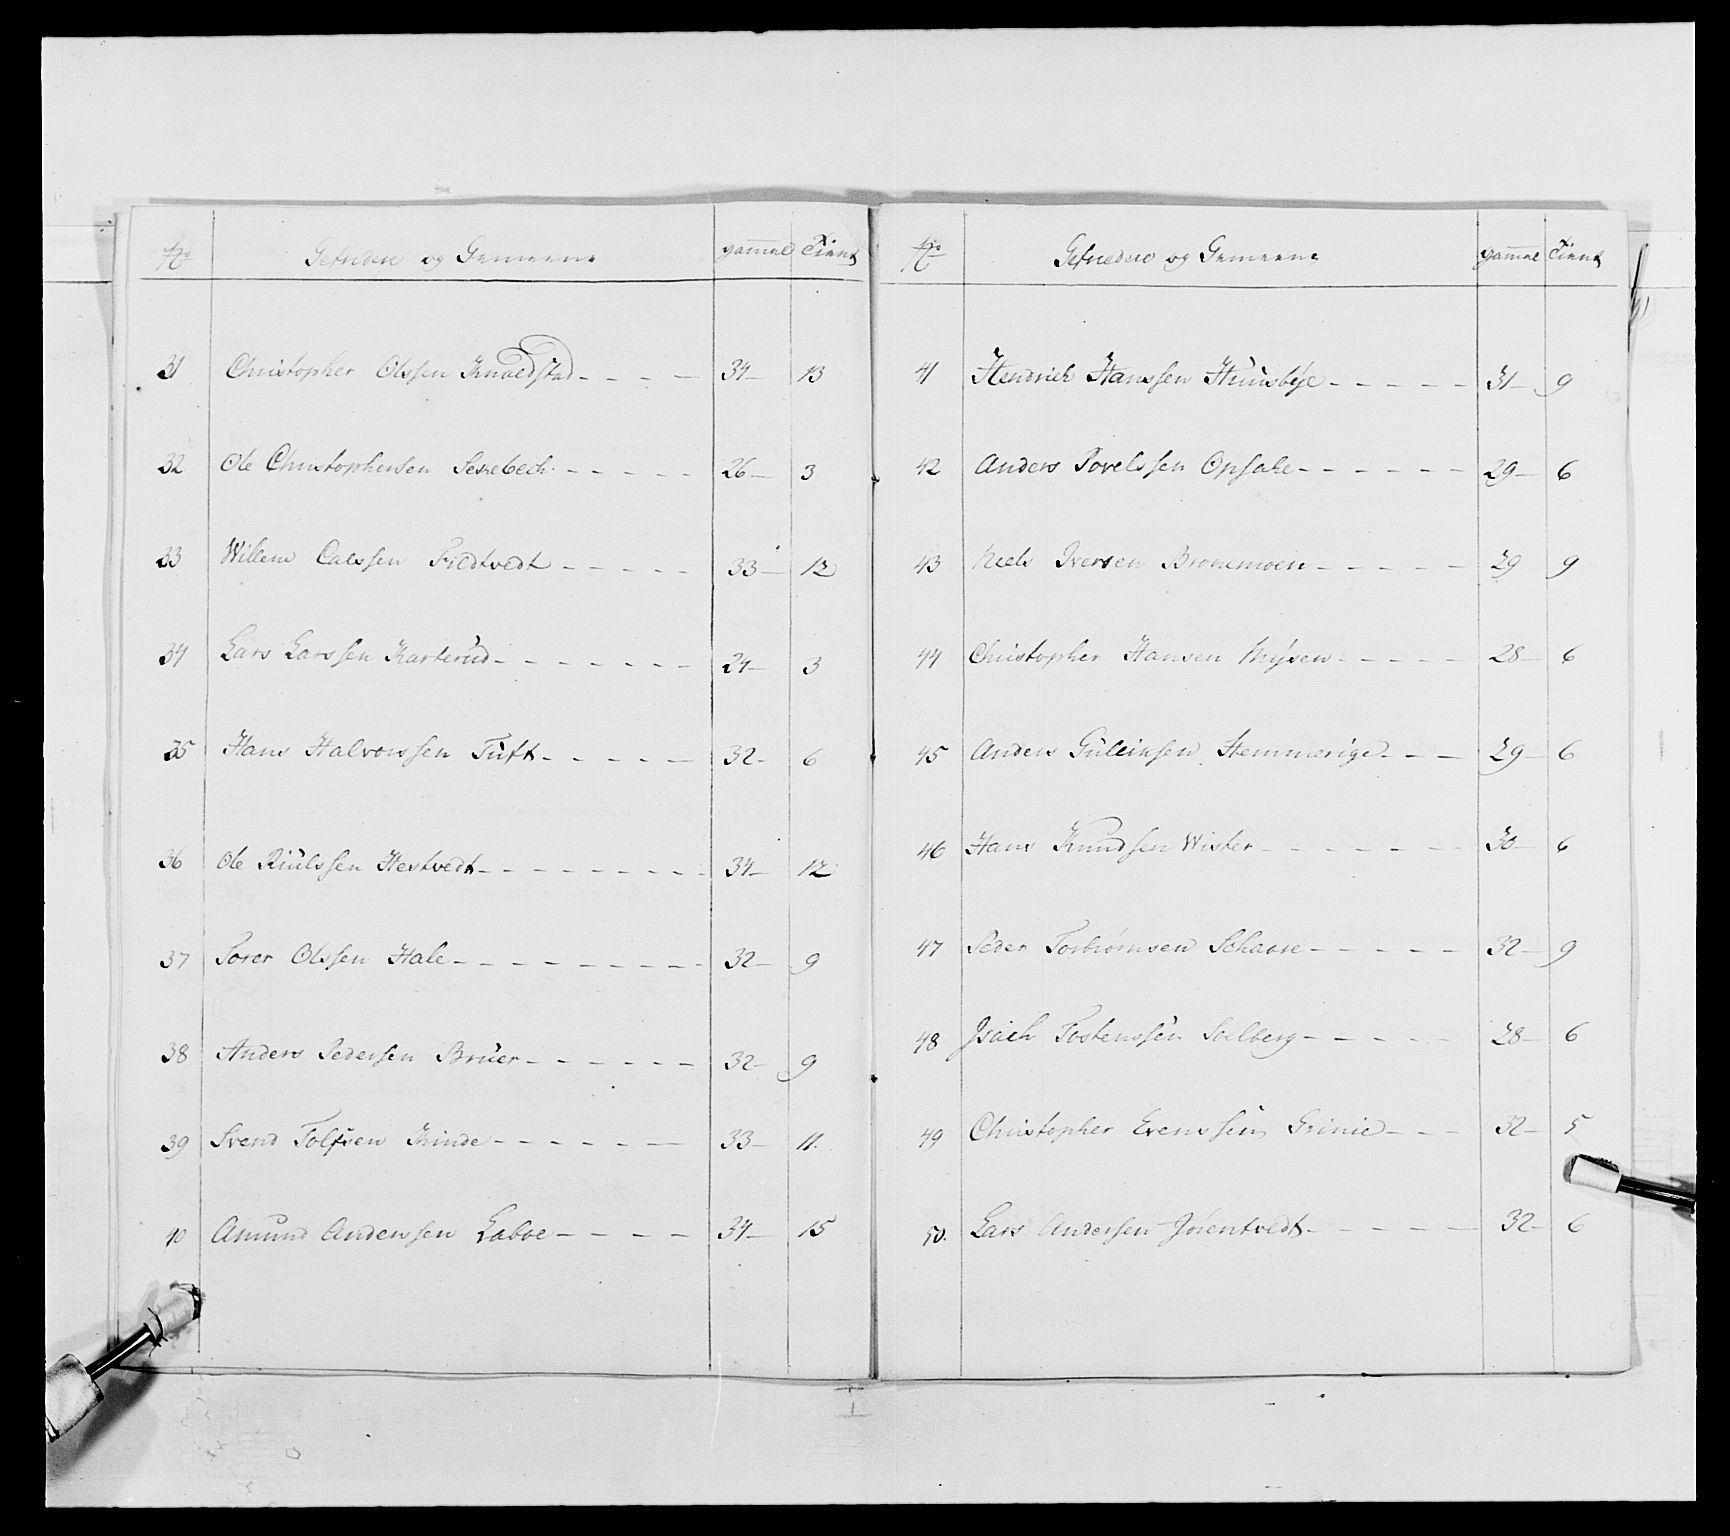 No Gefriedere og Gemeene gammel Tient
31 Christopher Olssen Knaedstad 34 13
32 Ole Christophersen Seskebech 26 3
33 Willem Calssen Fredtvedt 33 12
34 Lars Larssen Karterud 24 3
35 Hans Halvorssen Tuft 32 6
36 Ole Riulssen Hestvedt 34 12
37 Torer Olssen Hale 32 9
38 Anders Pedersen Bruer 32 9
39 Svend Tolfsen Kinde 33 11.
40 Amund Anderssen Laboe 34 15
No Gefriedere og Gemeene gammel Tient
41 Hendrich Hanssen Huusbye 31 9
42 Anders Povelssen Opsahe 29 6
43 Neels Iversen Bronemoen 29 9
44 Christopher Hansen Mÿsen 28 6
45 Anders Guleinsen Hemmerige 29 6
46 Hans Knudsen Wister 30 6
47 Peder Torbiømsen Schaare 32 9
48 Isach Tostenssen Solberg 28 6
49 Christopher Evenssen Grinie 32 5
50. Lars Andersen Jørentvedt 32 6